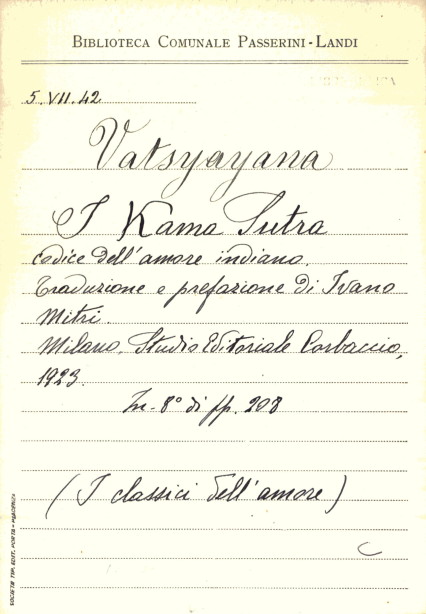 BIBLIOTECA COMUNALE PASSERINI-LANDI
5.VII.42
Vatsyayana
I Kama Sutra
codice dell'amore indiano.
Traduzione e prefazione di Ivano
Mitri.
Milano, Studio Editoriale Corbaccio,
1923.
In-8° di pp. 208
(I classici dell'amore)